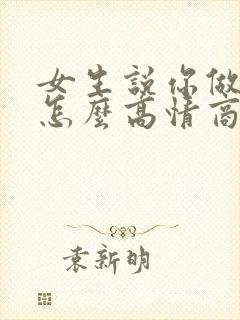 女生說你做
怎麼高情商
袁新明